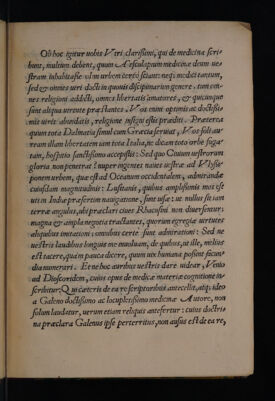 Ob hoc igitur nobis Viri clarissimi, qui de medicina scri-
bunt, multum debent, quum Aesculapium medicinae deum ue-
stram inhabitasse olim urbem certò sciant: neq; medici tantum,
sed & omnes uiri docti in quouis disciplinarum genere. tum om-
nes religioni addicti, omnes libertatis amatores, & quicunque
sunt aliqua uirtute praestantes. Vos enim optimis ac doctissi-
mis uiris abundatis, religione insigni estis praediti. Praeterea
quum tota Dalmatia simul cum Graecia seruiat, Vos soli au-
ream illam libertatem iam tota Italia, ne dicam toto orbe fuga-
tam, hospitio sanctissimo accepistis: Sed quo Ciuium uestrorum
gloria non penetrat? nuper ingentes naues uestrae ad Vlyssi-
ponem urbem, quae est ad Oceanum occidentalem, admirandae
cuiusdam magnitudinis: Lusitanis, quibus amplissimis mos est
uti in Indiae praesertim nauigatione, sunt uisae: ut nullus sit iam
terrae angulus, ubi praeclari ciues Rhacusini non diuersentur:
magna & ampla negotia tractantes, quorum egregias uirtutes
aliquibus imitationi: omnibus certè sunt admirationi: Sed ne
uestris laudibus longus me inuoluam, de quibus, ut ille, melius
est tacere, quàm pauca dicere, quum uix humana possent fœcun-
dia numerari. Et ne hoc auribus uestris dare uidear, Venio
ad Dioscoridem, cuius opus de medicae materiae cognitione in-
scribitur: Qui caeteris de ea re scriptoribus antecellit, atq; ideo
a Galeno doctissimo ac locupletissimo medicinae Autore, non
solum laudatur, uerum etiam reliquis antefertur: cuius doctri-
na praeclara Galenus ipse perterritus, non ausus est de ea re,